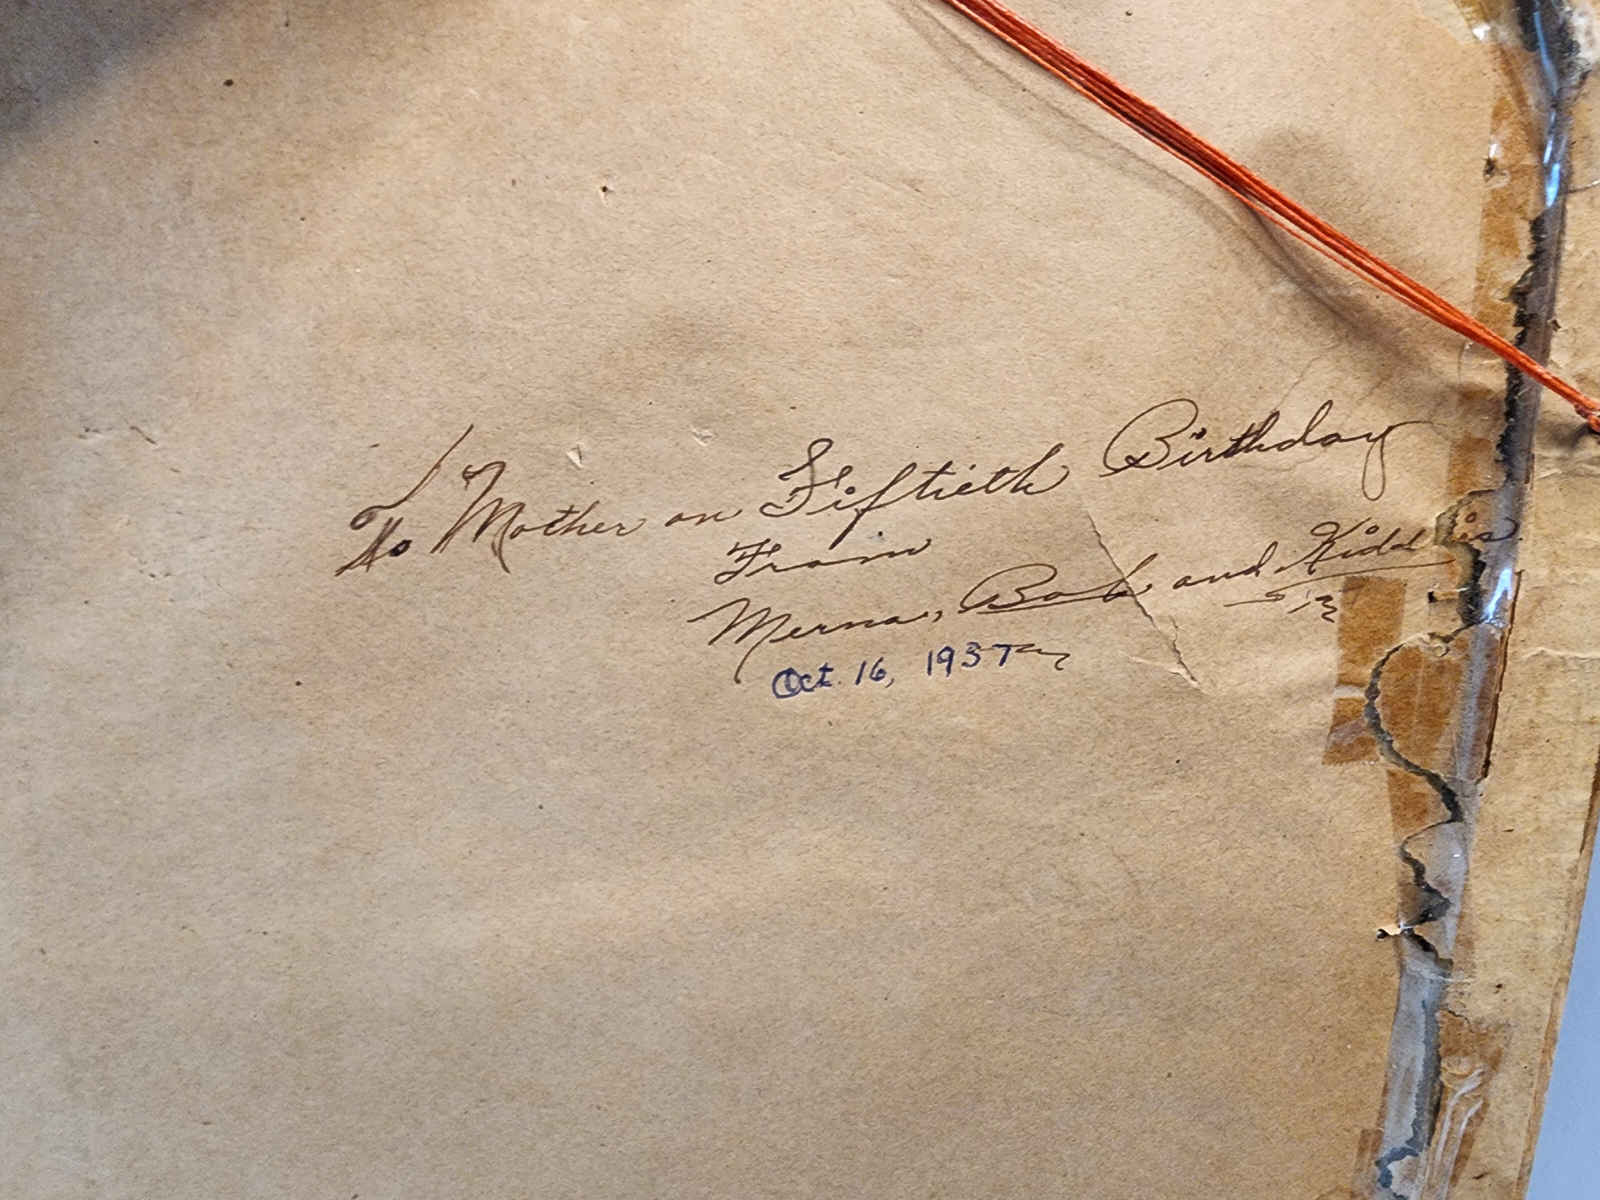 To Mother on Fiftieth Birthday
From
Merna, Bob and Kiddies.
Oct. 16, 1937